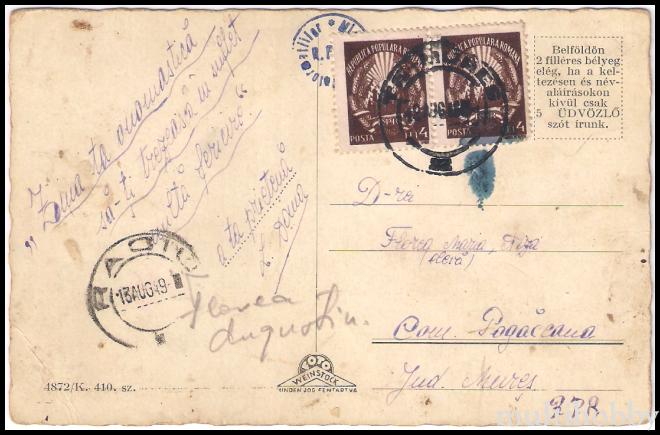 "Ziua ta onomastică
să-ți trezească în suflet
multă fericire"
a ta prietenă
L. Dana
Florea
Augustin.
RASTU
13AUG49
4872/K. 410. sz.
FOTO
WEINSTOCK
MINDEN JOG FENTARTVA
REPUBLICA POPULARA ROMANA
POSTA LEI 4
REPUBLICA POPULARA ROMANA
POSTA LEI 4
AUG49
Belföldön
2 filléres bélyeg
elég, ha a kel-
tezésen és név-
aláírásokon
kívül csak
5 ÜDVÖZLŐ
szót írunk.
D-rei
Florea Maria
(elevă)
Com. Pogăceaua
Jud. Mureș
378